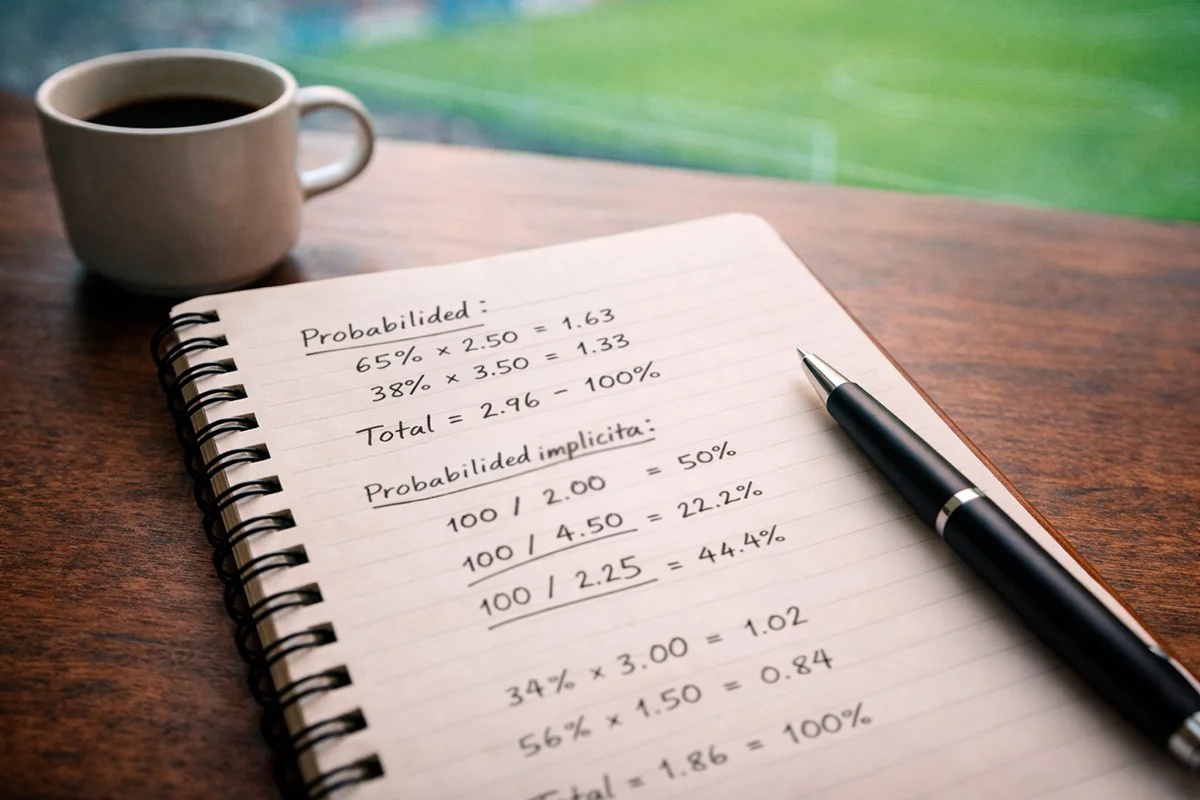 Probabilided:
65% × 2.50 = 1.63
38% × 3.50 = 1.33
Total = 2.96 – 100%
Probabilided implicita:
100 / 2.00 = 50%
100 / 4.50 = 22.2%
100 / 2.25 = 44.4%
34% × 3.00 = 1.02
56% × 1.50 = 0.84
Total = 1.86 = 100%